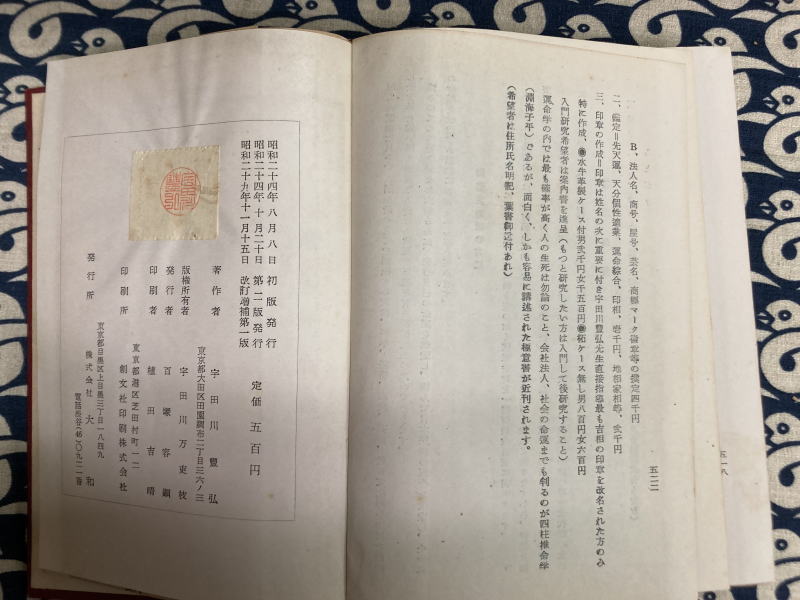 B、法人名、商号、屋号、芸名、商標マーク徽章等の撰定四千円
二、鑑定＝先天運、天分個性適業、運命綜合、印相、壱千円、地相家相等、弐千円
三、印章の作成＝印章は姓名の次に重要に付き宇田川豊弘先生直接指導最も吉相の印章を改名された方のみ
特に作成、水牛革製ケース付男弐千円女千五百円 柘ケース無し男八百円女六百円
入門研究希望者は案内書を進呈（もつと研究したい方は入門して後研究すること）
運命学の内では最も確率が高く人の生死は勿論のこと、会社法人、社会の命運までも判るのが四柱推命学
（淵海子平）であるが、面白く、しかも容易に講述された極意書が近刊されます。
（希望者は住所氏名明記、葉書御送付あれ）
五二二
五一八
昭和二十四年八月八日 初版発行
昭和二十四年十月二十日 第二版発行
昭和二十九年十一月十五日 改訂増補第一版
定価 五百円
著作者 宇田川豊弘
東京都大田区田園調布二丁目三六ノ三
版権所有者 宇田川万東枝
発行者 百瀬容顕
印刷者 植田吉晴
東京都港区芝田村町一ノ二
印刷所 創文社印刷株式会社
東京都目黒区上目黒三丁目一八四九
発行所 株式会社 大和